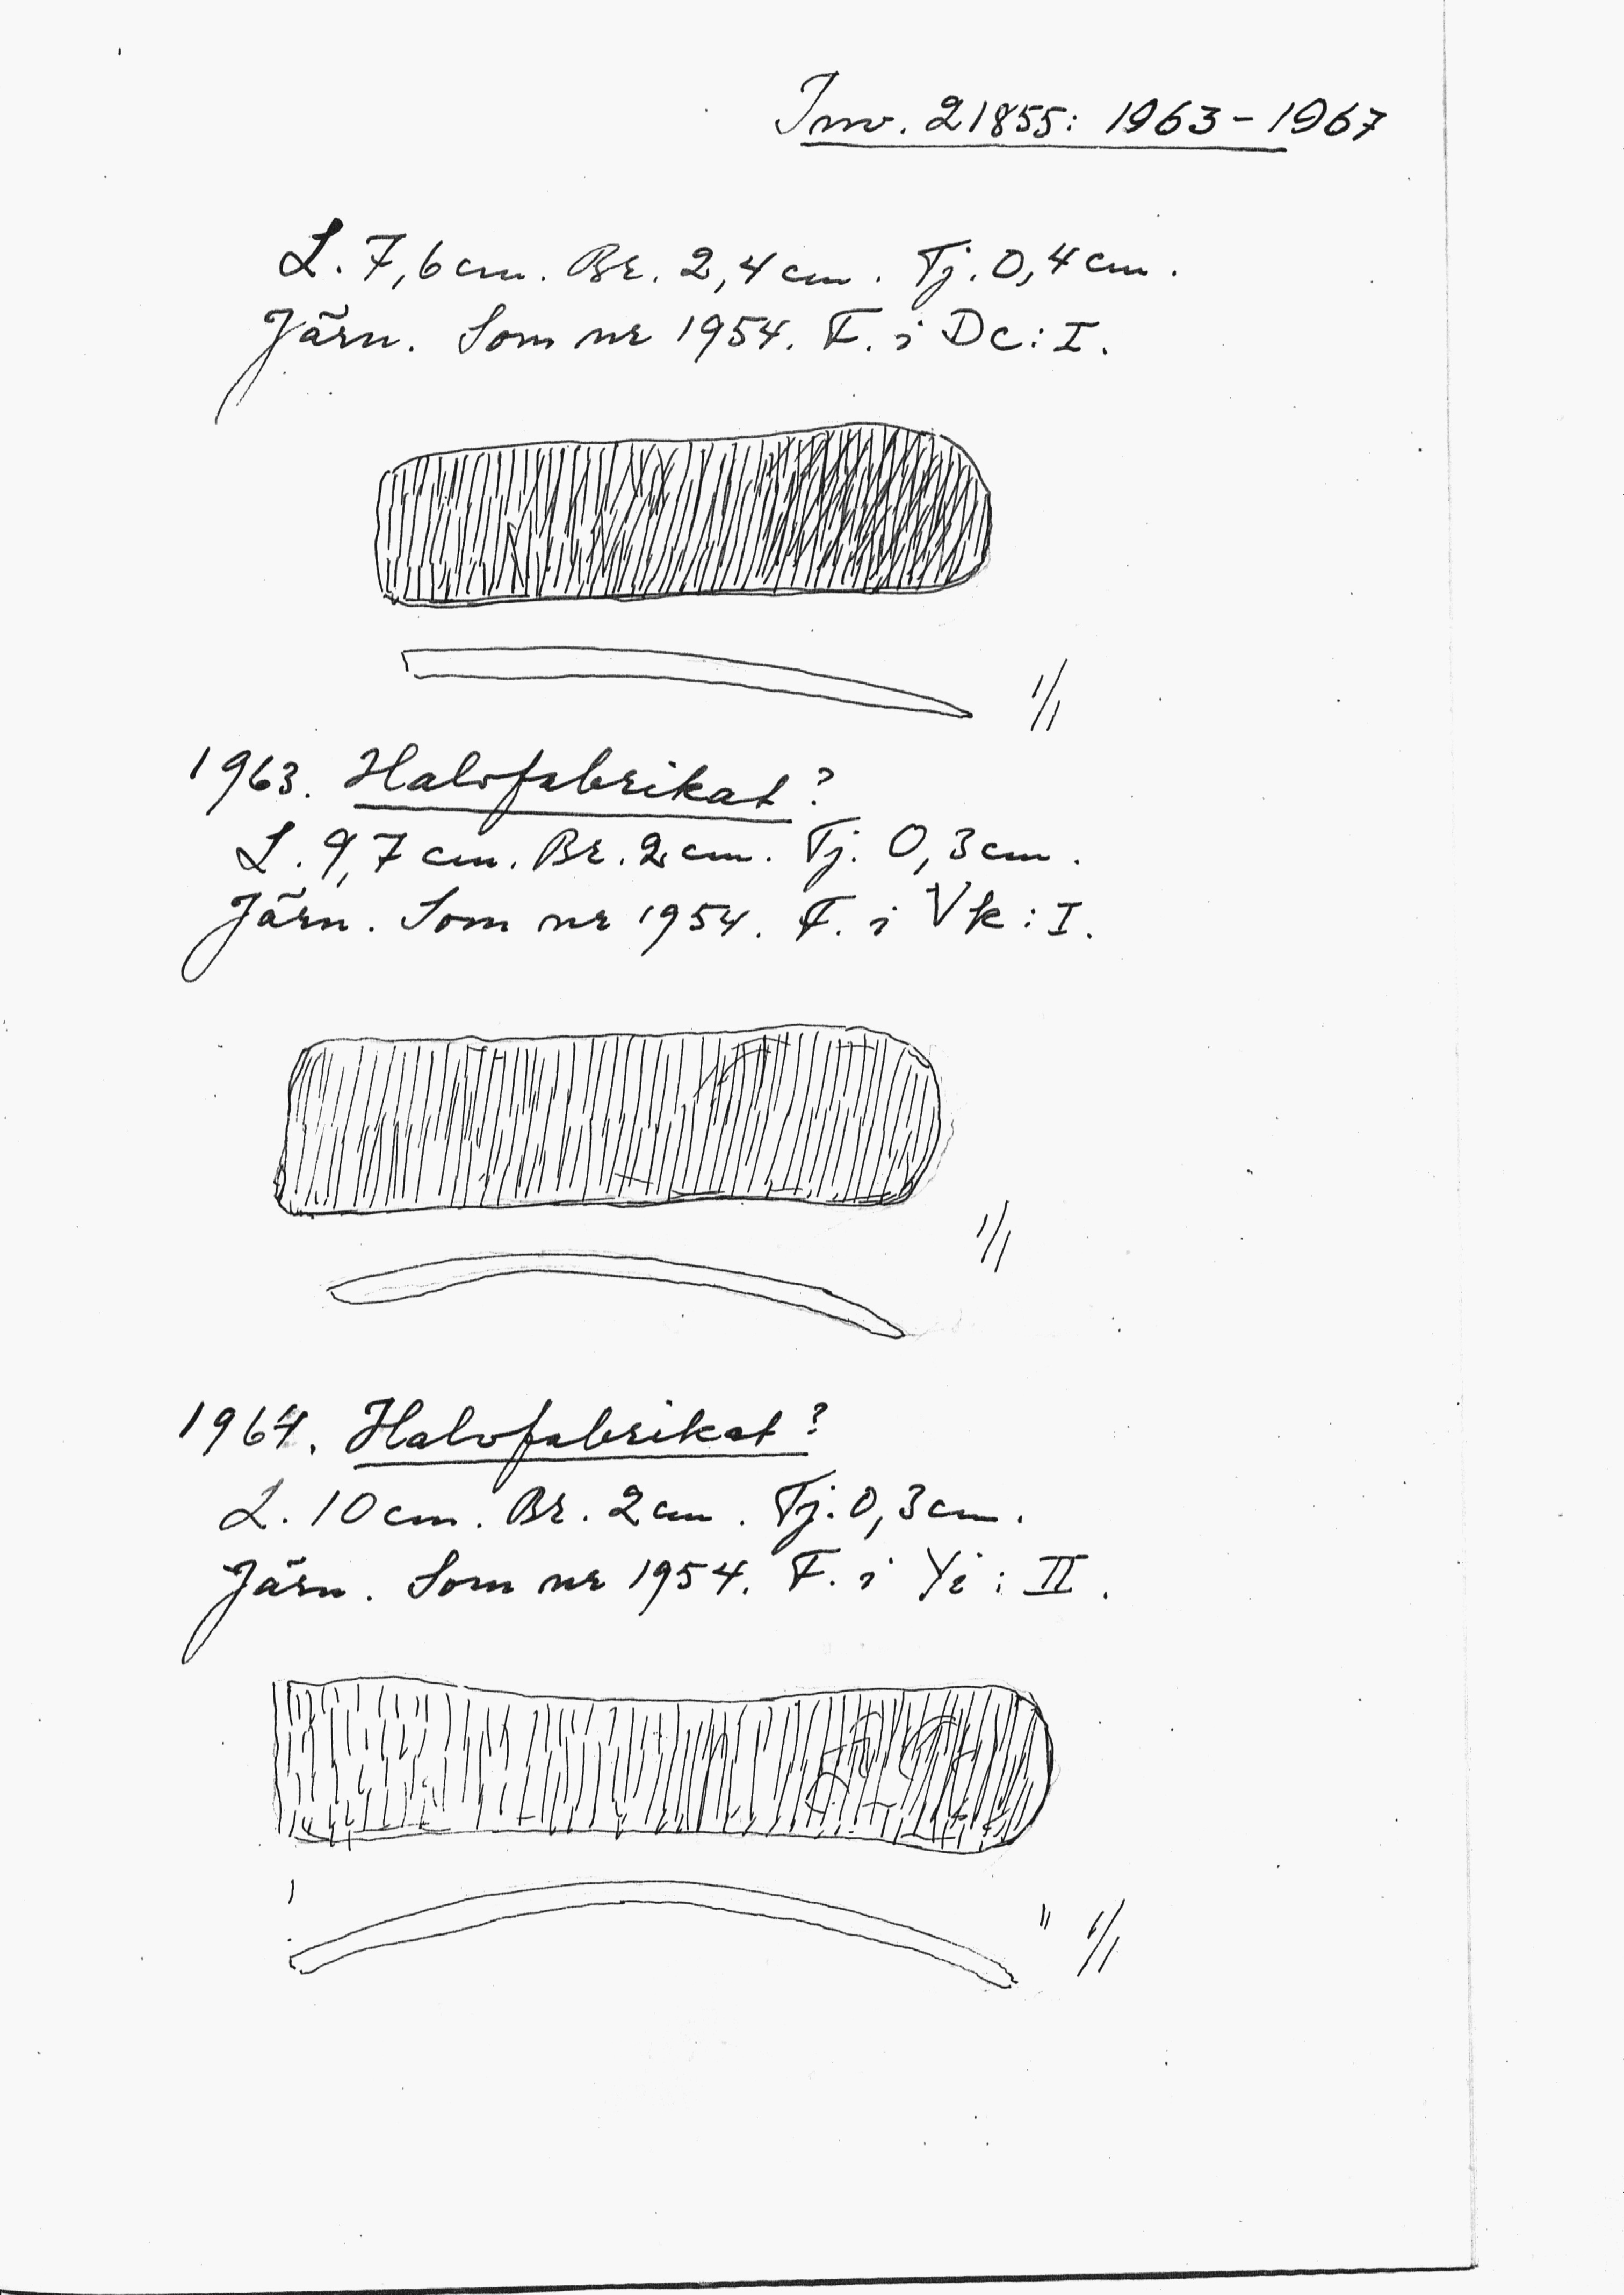 Inv. 21855: 1963-1967
L. 7,6 cm. Br. 2,4 cm. Tj. 0,4 cm.
Järn. Som nr 1954. F. i Dc: I.
1/1
1963. Halvfabrikat?
L. 9,7 cm. Br. 2 cm. Tj. 0,3 cm.
Järn. Som nr 1954. F. i Vk: I.
1/1
1964. Halvfabrikat?
L. 10 cm. Br. 2 cm. Tj. 0,3 cm.
Järn. Som nr 1954. F. i Yi: II.
1/1